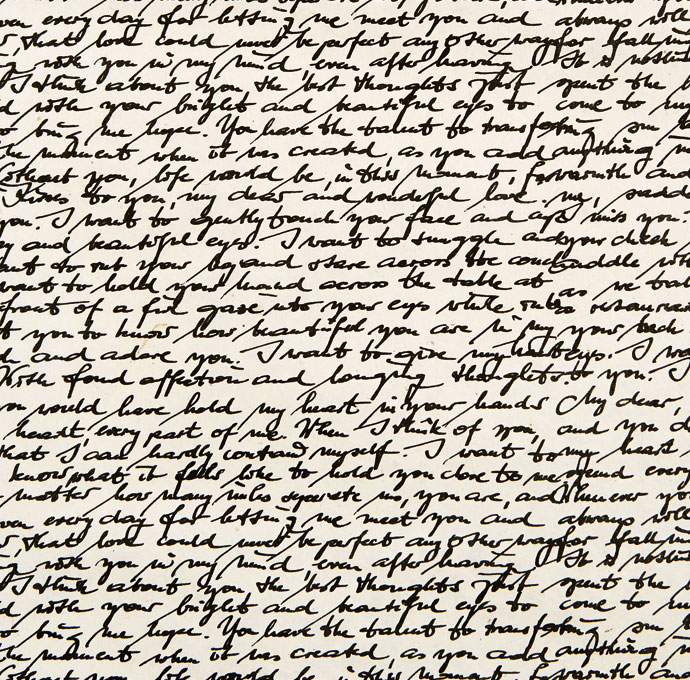 ven every day for letting me meet you and always will
, that love could never be perfect any other way for
with you in my mind, even after having It is
I think about you, the best thoughts Just spent the
with your bright and beautiful eyes to come to my
to bring me hope. You have the talent to
the moment when it was created, as you add anything
without you, life would be, in this moment, for warmth and
Kisses to you, my dear and wonderful love. me,
you. I want to gently touch your face and miss you.
and beautiful eyes. I want to snuggle and your cheek
to rub your leg and stare across the
want to hold your hand across the table at as we
front of a fire gaze into your eyes while
t you to know how beautiful you are in my your
and adore you. I want to give my eyes. I
With fond affection and longing thoughts to you. I
you would have held my heart in your hands My dear,
heart, every part of me. When I think of you, and you
that I can hardly contain myself. I want to my heart
know what it feels like to hold you close to me spend every
matter how many miles separate us, you are, and Whenever
ven every day for letting me meet you and always will
, that love could never be perfect any other way for
with you in my mind, even after having It is
I think about you, the best thoughts Just spent the
with your bright and beautiful eyes to come to
to bring me hope. You have the talent to
the moment when it was created, as you add anything
without you, life would be, in this moment, for warmth and